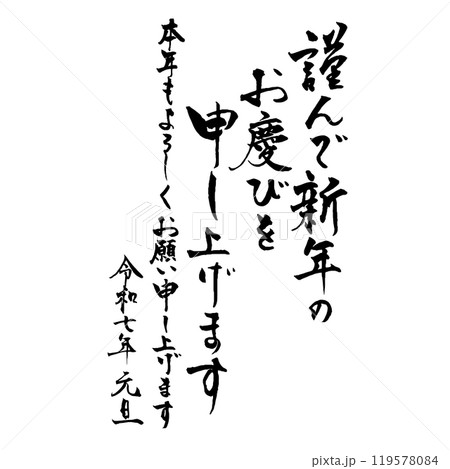 謹んで新年の
お慶びを
申し上げます
本年もよろしくお願い申し上げます
令和七年 元旦
PIXTA
pixta.jp - 119578084